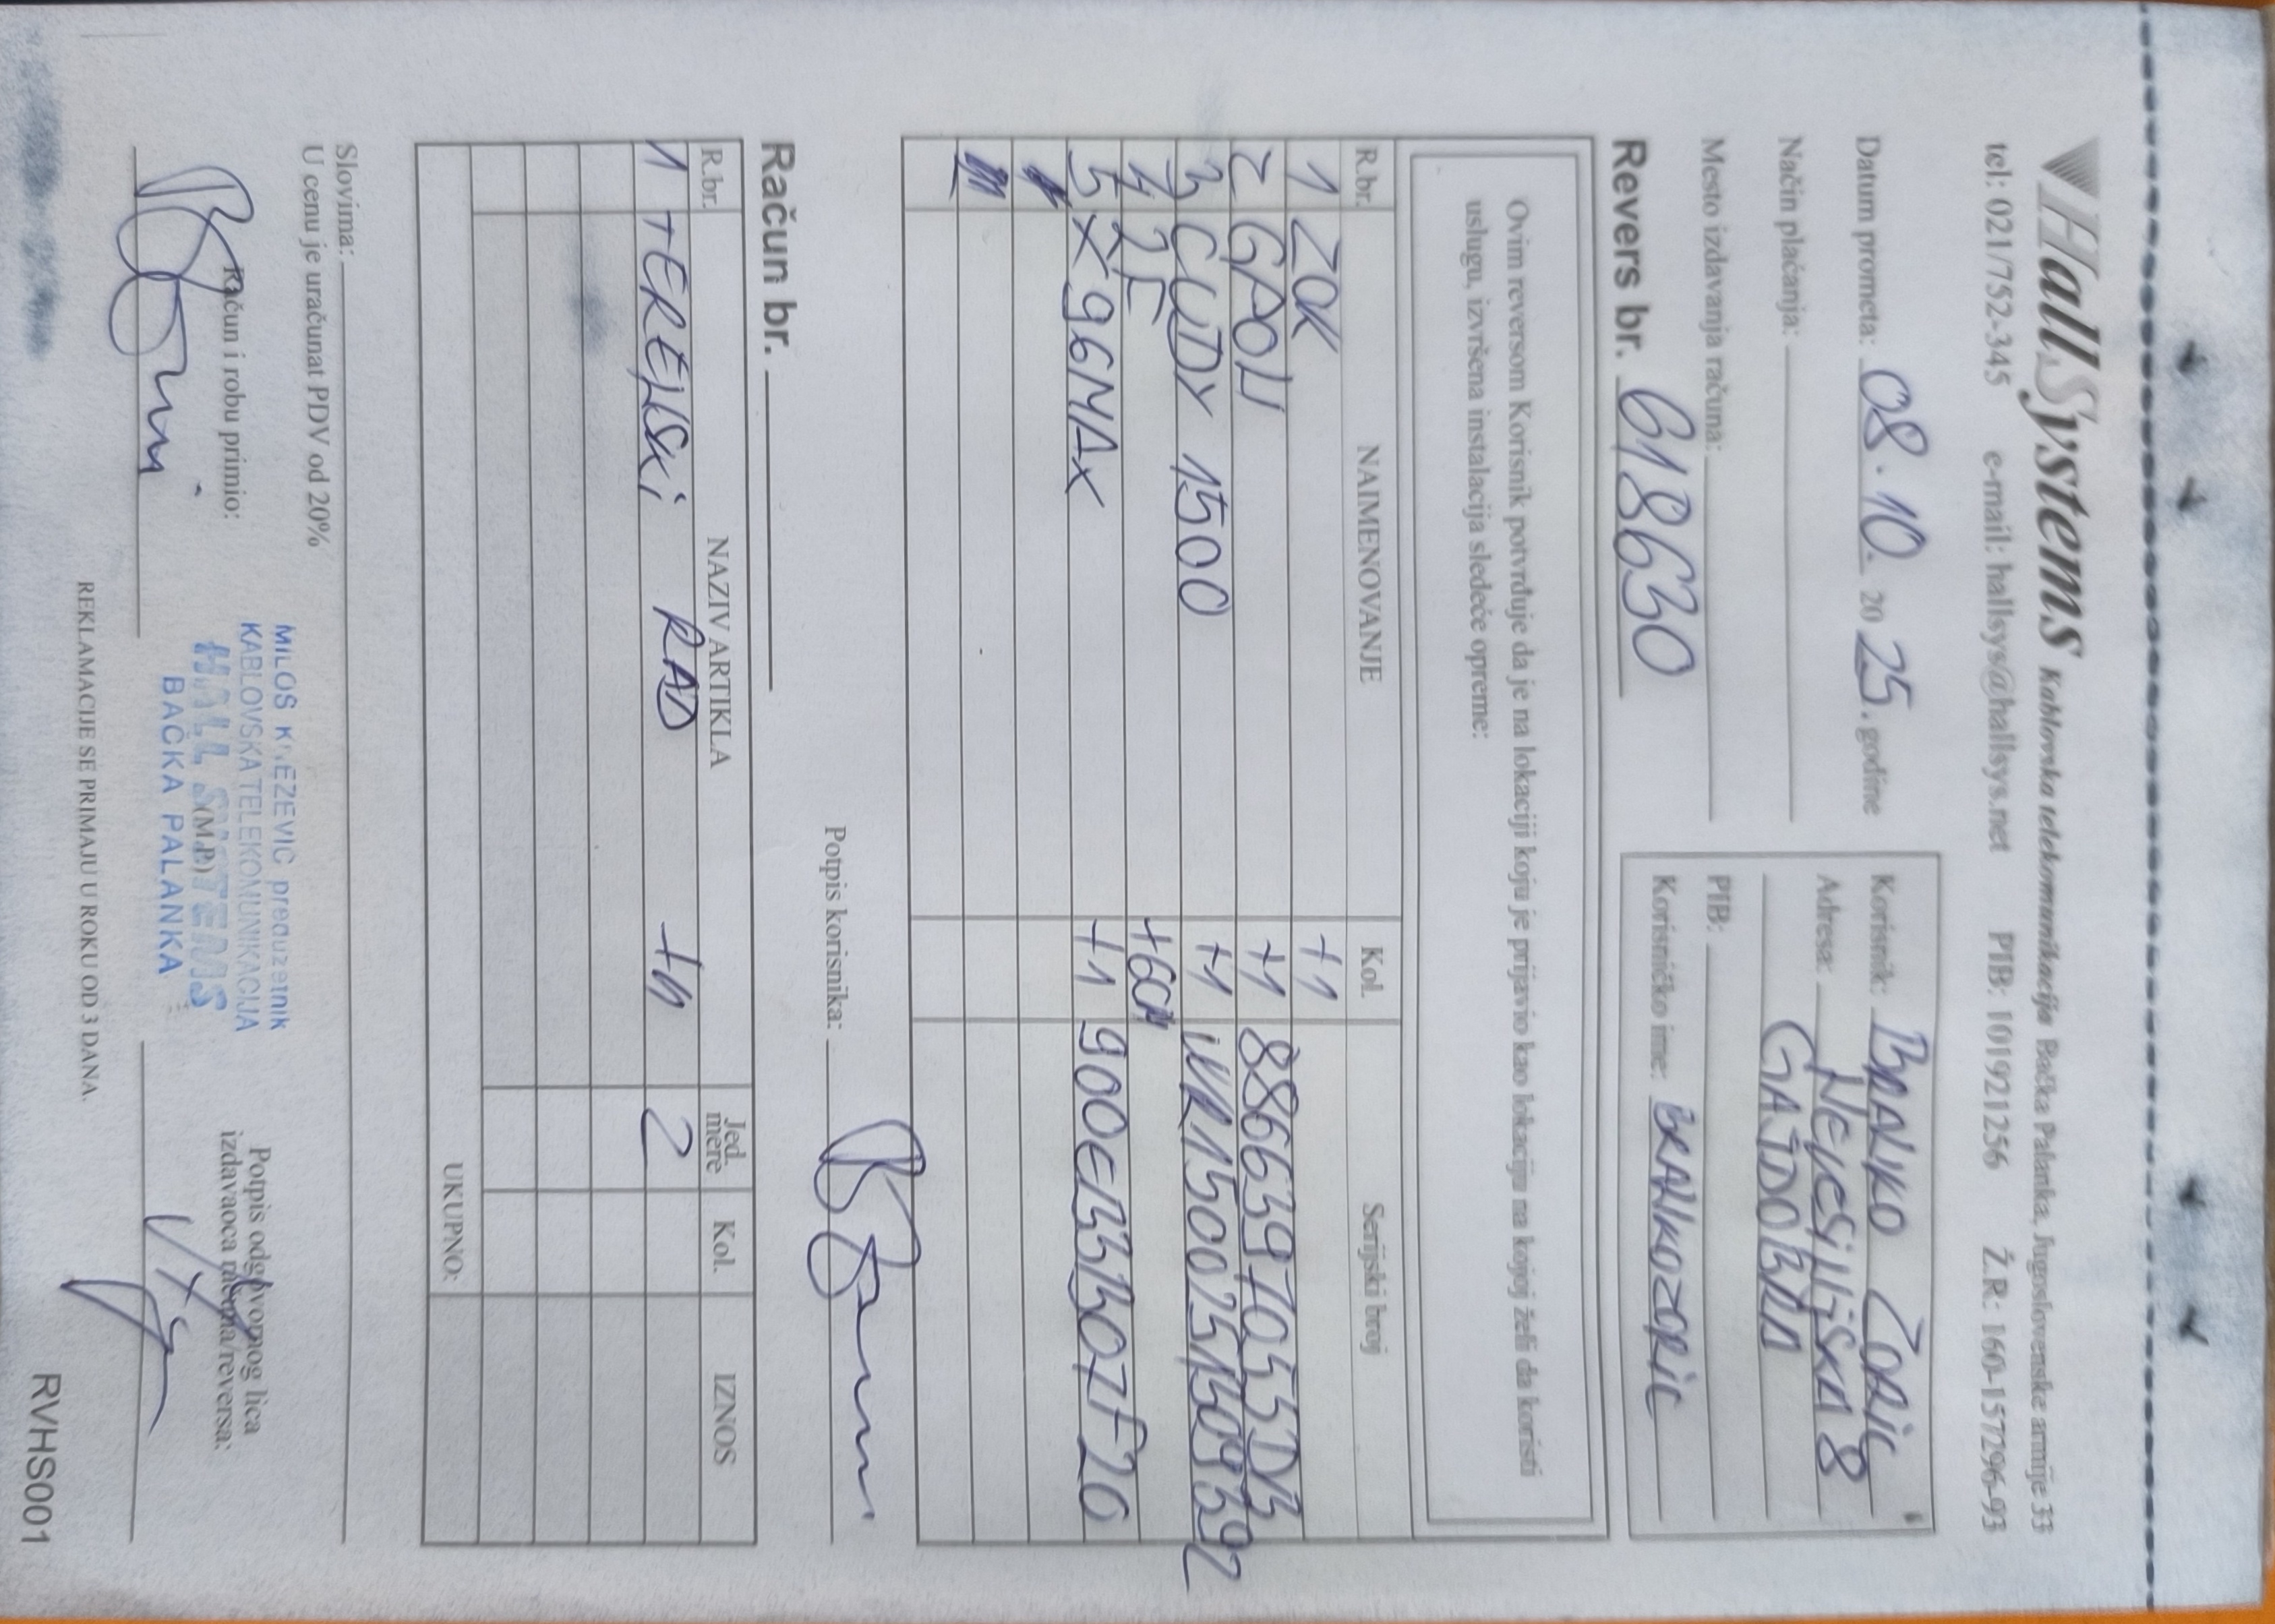 HallSystems Kablovska telekomunikacija Bačka Palanka, Jugoslovenske armije 33
tel: 021/752-345 e-mail: hallsys@hallsys.net PIB: 101921256 Ž.R.: 160-157296-93
Datum prometa: 08.10. 2025. godine
Način plaćanja:
Mesto izdavanja računa:
Revers br. 618630
Korisnik: BRANKO ZORIC
Adresa: NEVESiNJSKA 8
GAJDOBRA
PIB:
Korisničko ime: BRANKOZORIC
Ovim reversom Korisnik potvrđuje da je na lokaciji koju je prijavio kao lokaciju na kojoj želi da koristi
uslugu, izvršena instalacija sledeće opreme:
R.br. NAIMENOVANJE Kol. Serijski broj
1 ZOK +1
2 GPON +1 8866397A355DB3
3 CUDY 1500 +1 WR15002515093392
4
5 X96MAX +1 900EB3B07F20
Potpis korisnika:
Račun br.
R.br. NAZIV ARTIKLA Jed. mere Kol. IZNOS
1 TERENSKi RAD 2
UKUPNO:
Slovima:
U cenu je uračunat PDV od 20%
Račun i robu primio:
MILOŠ KNEŽEVIĆ preduzetnik
KABLOVSKA TELEKOMUNIKACIJA
HALL SYSTEMS
(M.P.)
BAČKA PALANKA
Potpis odgovornog lica
izdavaoca računa/reversa:
REKLAMACIJE SE PRIMAJU U ROKU OD 3 DANA.
RVHS001